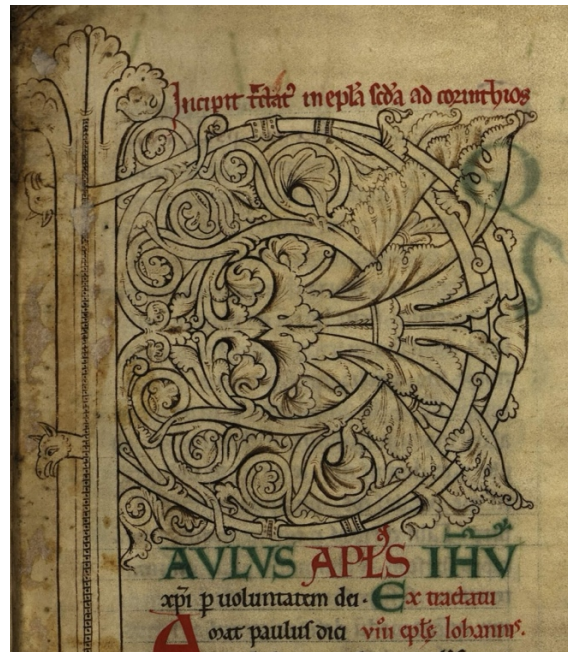 Incipit tctat̄ in epl̄a scd̄a ad corinthios
P
AVLVS APL̄S IH̄V
xp̄i p̄ uoluntatem dei. Ex tractatu
A oꝛat pauluſ dici viii eple Iohannis.